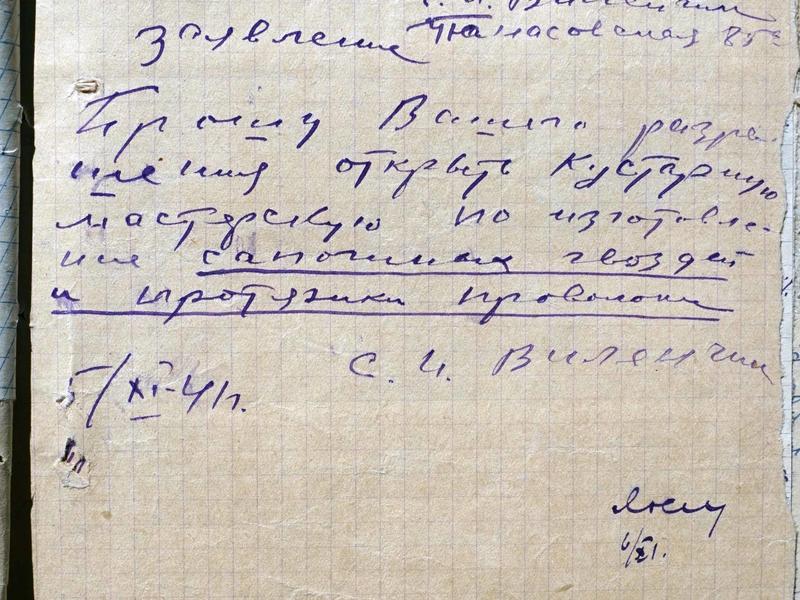 С. И. Виленчик
Заявление Афанасовская 85а
Прошу Вашего разре-
шения открыть кустарную
мастерскую по изготовле-
ние сапожных гвоздей
и протяжки проволоки
С. И. Виленчик
5/XI-41г.
6/XI.